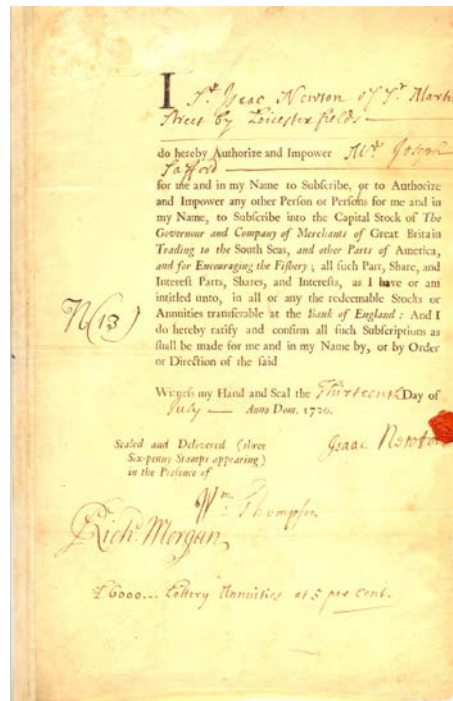 I Sr. Isaac Newton of St. Martin
Street by Leicester fields
do hereby Authorize and Impower Mr. Joseph
Safford
for me and in my Name to Subscribe, or to Authorize
and Impower any other Person or Persons for me and in
my Name, to Subscribe into the Capital Stock of The
Governour and Company of Merchants of Great Britain
Trading to the South Seas, and other Parts of America,
and for Encouraging the Fishery; all such Part, Share, and
Interest Parts, Shares, and Interests, as I have or am
intitled unto, in all or any the redeemable Stocks or
Annuities transferable at the Bank of England: And I
do hereby ratify and confirm all such Subscriptions as
shall be made for me and in my Name by, or by Order
or Direction of the said
N(13)
Witness my Hand and Seal the Thirteenth Day of
July Anno Dom. 1720.
Sealed and Delivered (three
Six-penny Stamps appearing)
in the Presence of
Isaac Newton
Wm. Thompson
Richd. Morgan
£6000... Lottery Annuities at 5 per Cent.